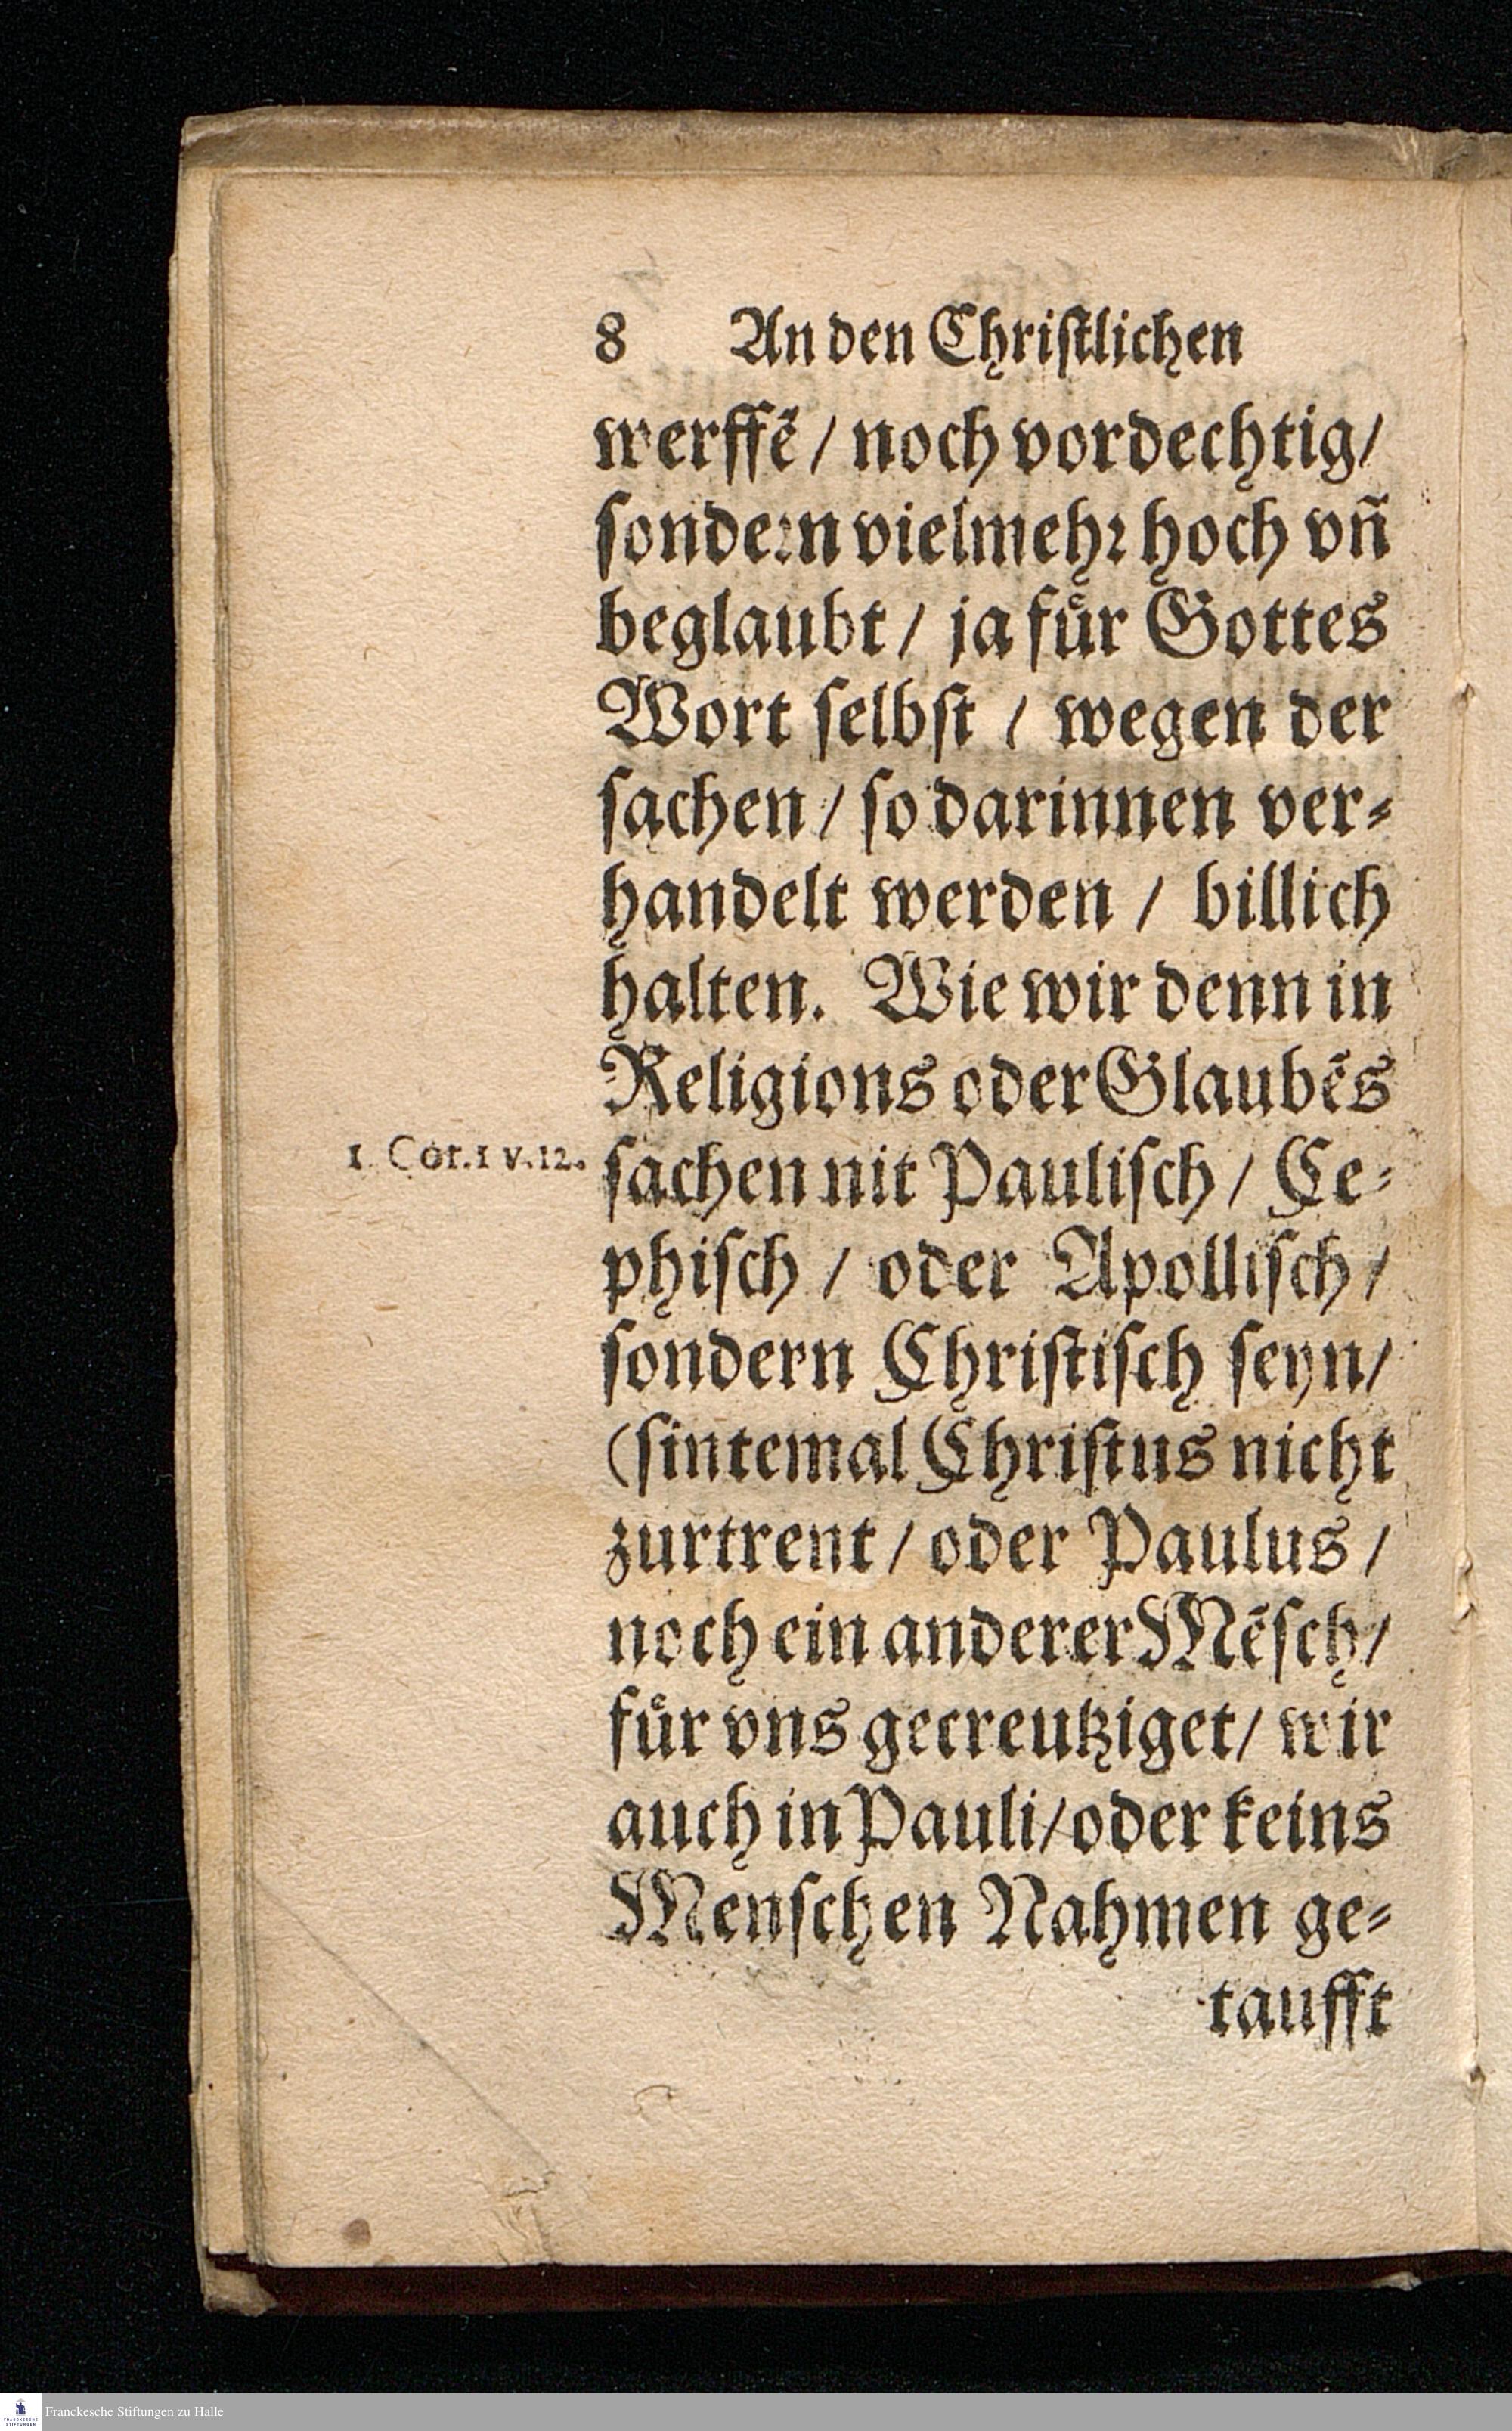 8 An den Chriſtlichen
werffẽ / noch vordechtig /
ſondern vielmehr hoch vñ
beglaubt / ja fuͤr Gottes
Wort ſelbſt / wegen der
ſachen / ſo darinnen ver⸗
handelt werden / billich
halten. Wie wir denn in
Religions oder Glaubẽs
1. Cor. 1 v. 12.
ſachen nit Pauliſch / Ce⸗
phiſch / oder Apolliſch /
ſondern Chriſtiſch ſeyn /
(ſintemal Chriſtus nicht
zurtrent / oder Paulus /
noch ein anderer Mẽſch /
fuͤr vns gecreutziget / wir
auch in Pauli / oder keins
Menſchen Nahmen ge⸗
taufft
FRANCKESCHE STIFTUNGEN
Franckesche Stiftungen zu Halle